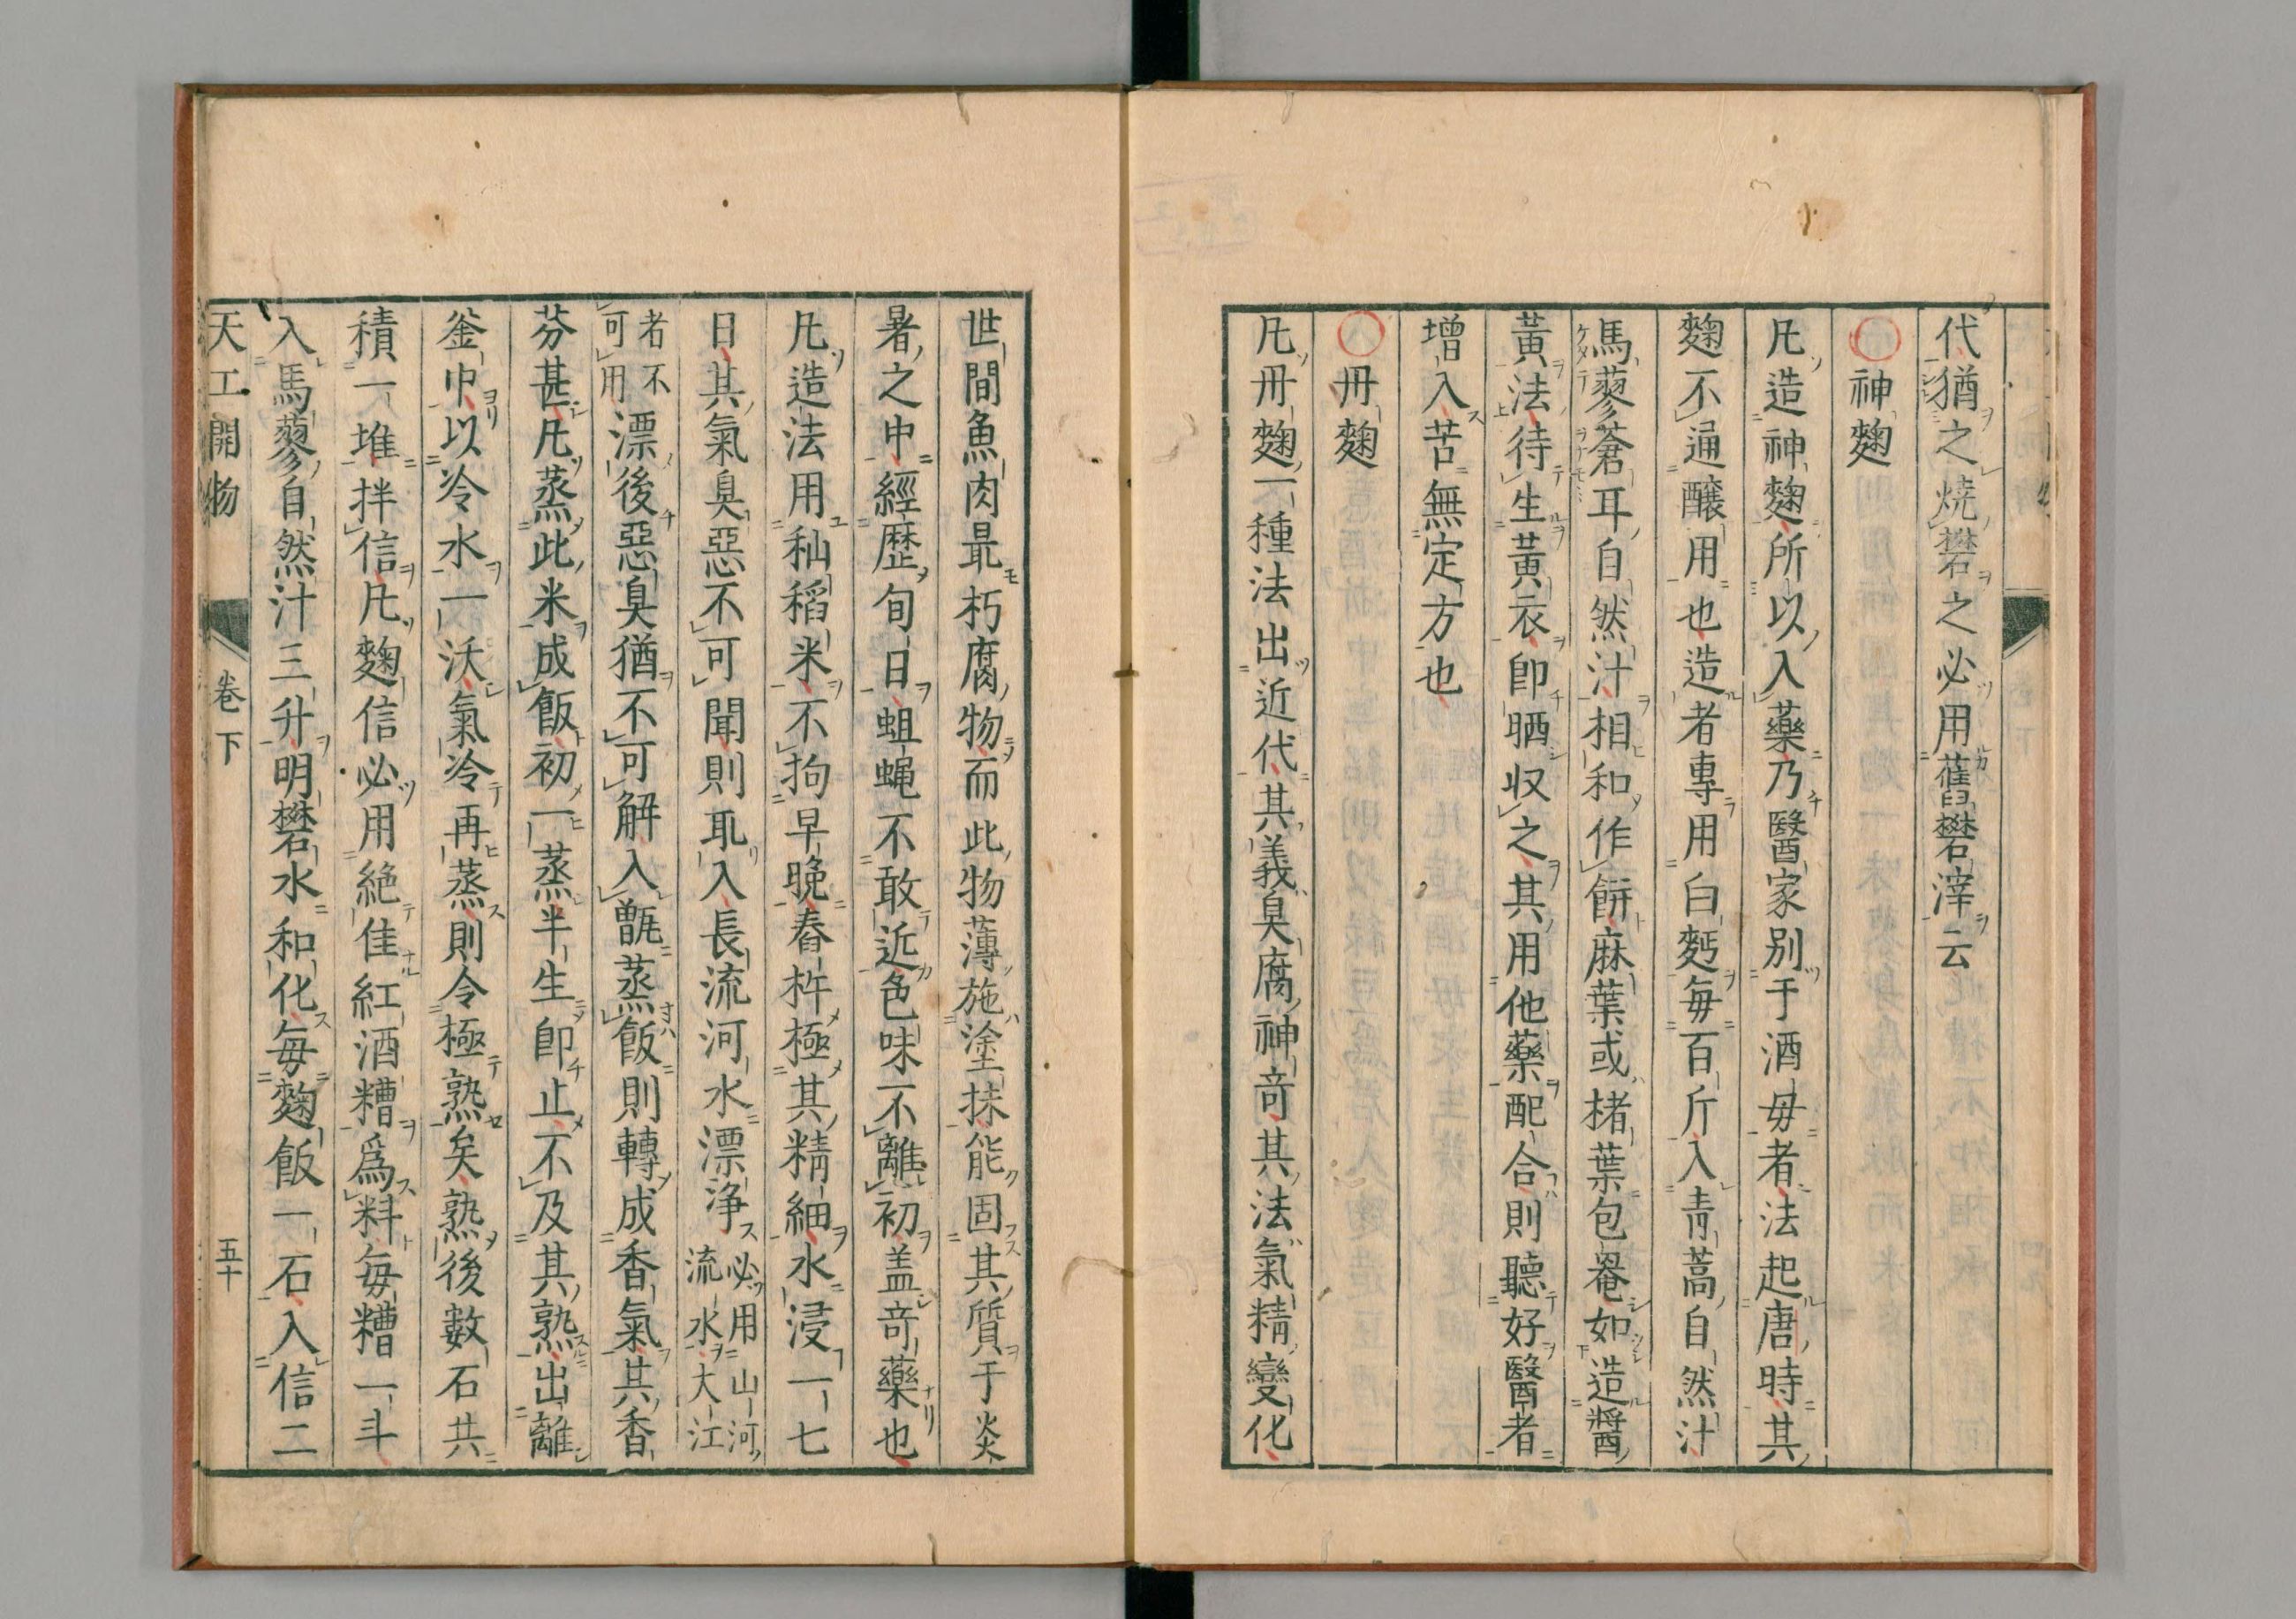 代猶之燒礬之必用舊礬滓云
○神麴
凡造神麴所以入藥乃醫家別于酒毋者法起唐時其
麴不通釀用也造者專用白麪每百斤入青蒿自然汁
馬蓼蒼耳自然汁相和作餅麻葉或楮葉包罨如造醬
黃法待生黃衣卽晒収之其用他藥配合則聽好醫者
增入苦無定方也
○丹麴
凡丹麴一種法出近代其義臭腐神竒其法氣精變化
世間魚肉最朽腐物而此物薄施塗抹能固其質于炎
暑之中經歷旬日蛆蠅不敢近色味不離初盖竒藥也
凡造法用秈稻米不拘早晚舂杵極其精細水浸一七
日其氣臭惡不可聞則取入長流河水漂淨必用山河
流水大江
者不
可用漂後惡臭猶不可解入甑蒸飯則轉成香氣其香
芬甚凡蒸此米成飯初一蒸半生卽止不及其熟出離
釜中以冷水一沃氣冷再蒸則令極熟矣熟後數石共
積一堆拌信凡麴信必用絕佳紅酒糟爲料每糟一斗
入馬蓼自然汁三升明礬水和化每麴飯一石入信二
天工開物
卷下
五十